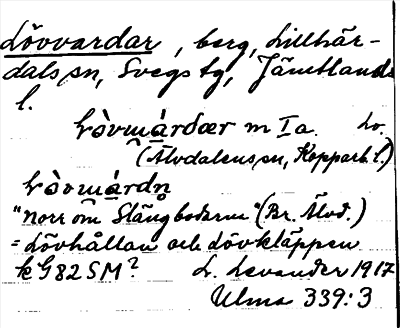 Lövvardar, berg, Lillhär-
dals sn, Svegs tg, Jämtlands
l.
Lòvmạrdær m Ia. Lv.
(Älvdalens sn, Kopparb l.)
Lòvmạrdn̥
"Norr om Slängbodarne" (Br. Älvd.)
= Lövhållan och Lövkläppen
k G 82 SM? L. Levander 1917
Ulma 339:3